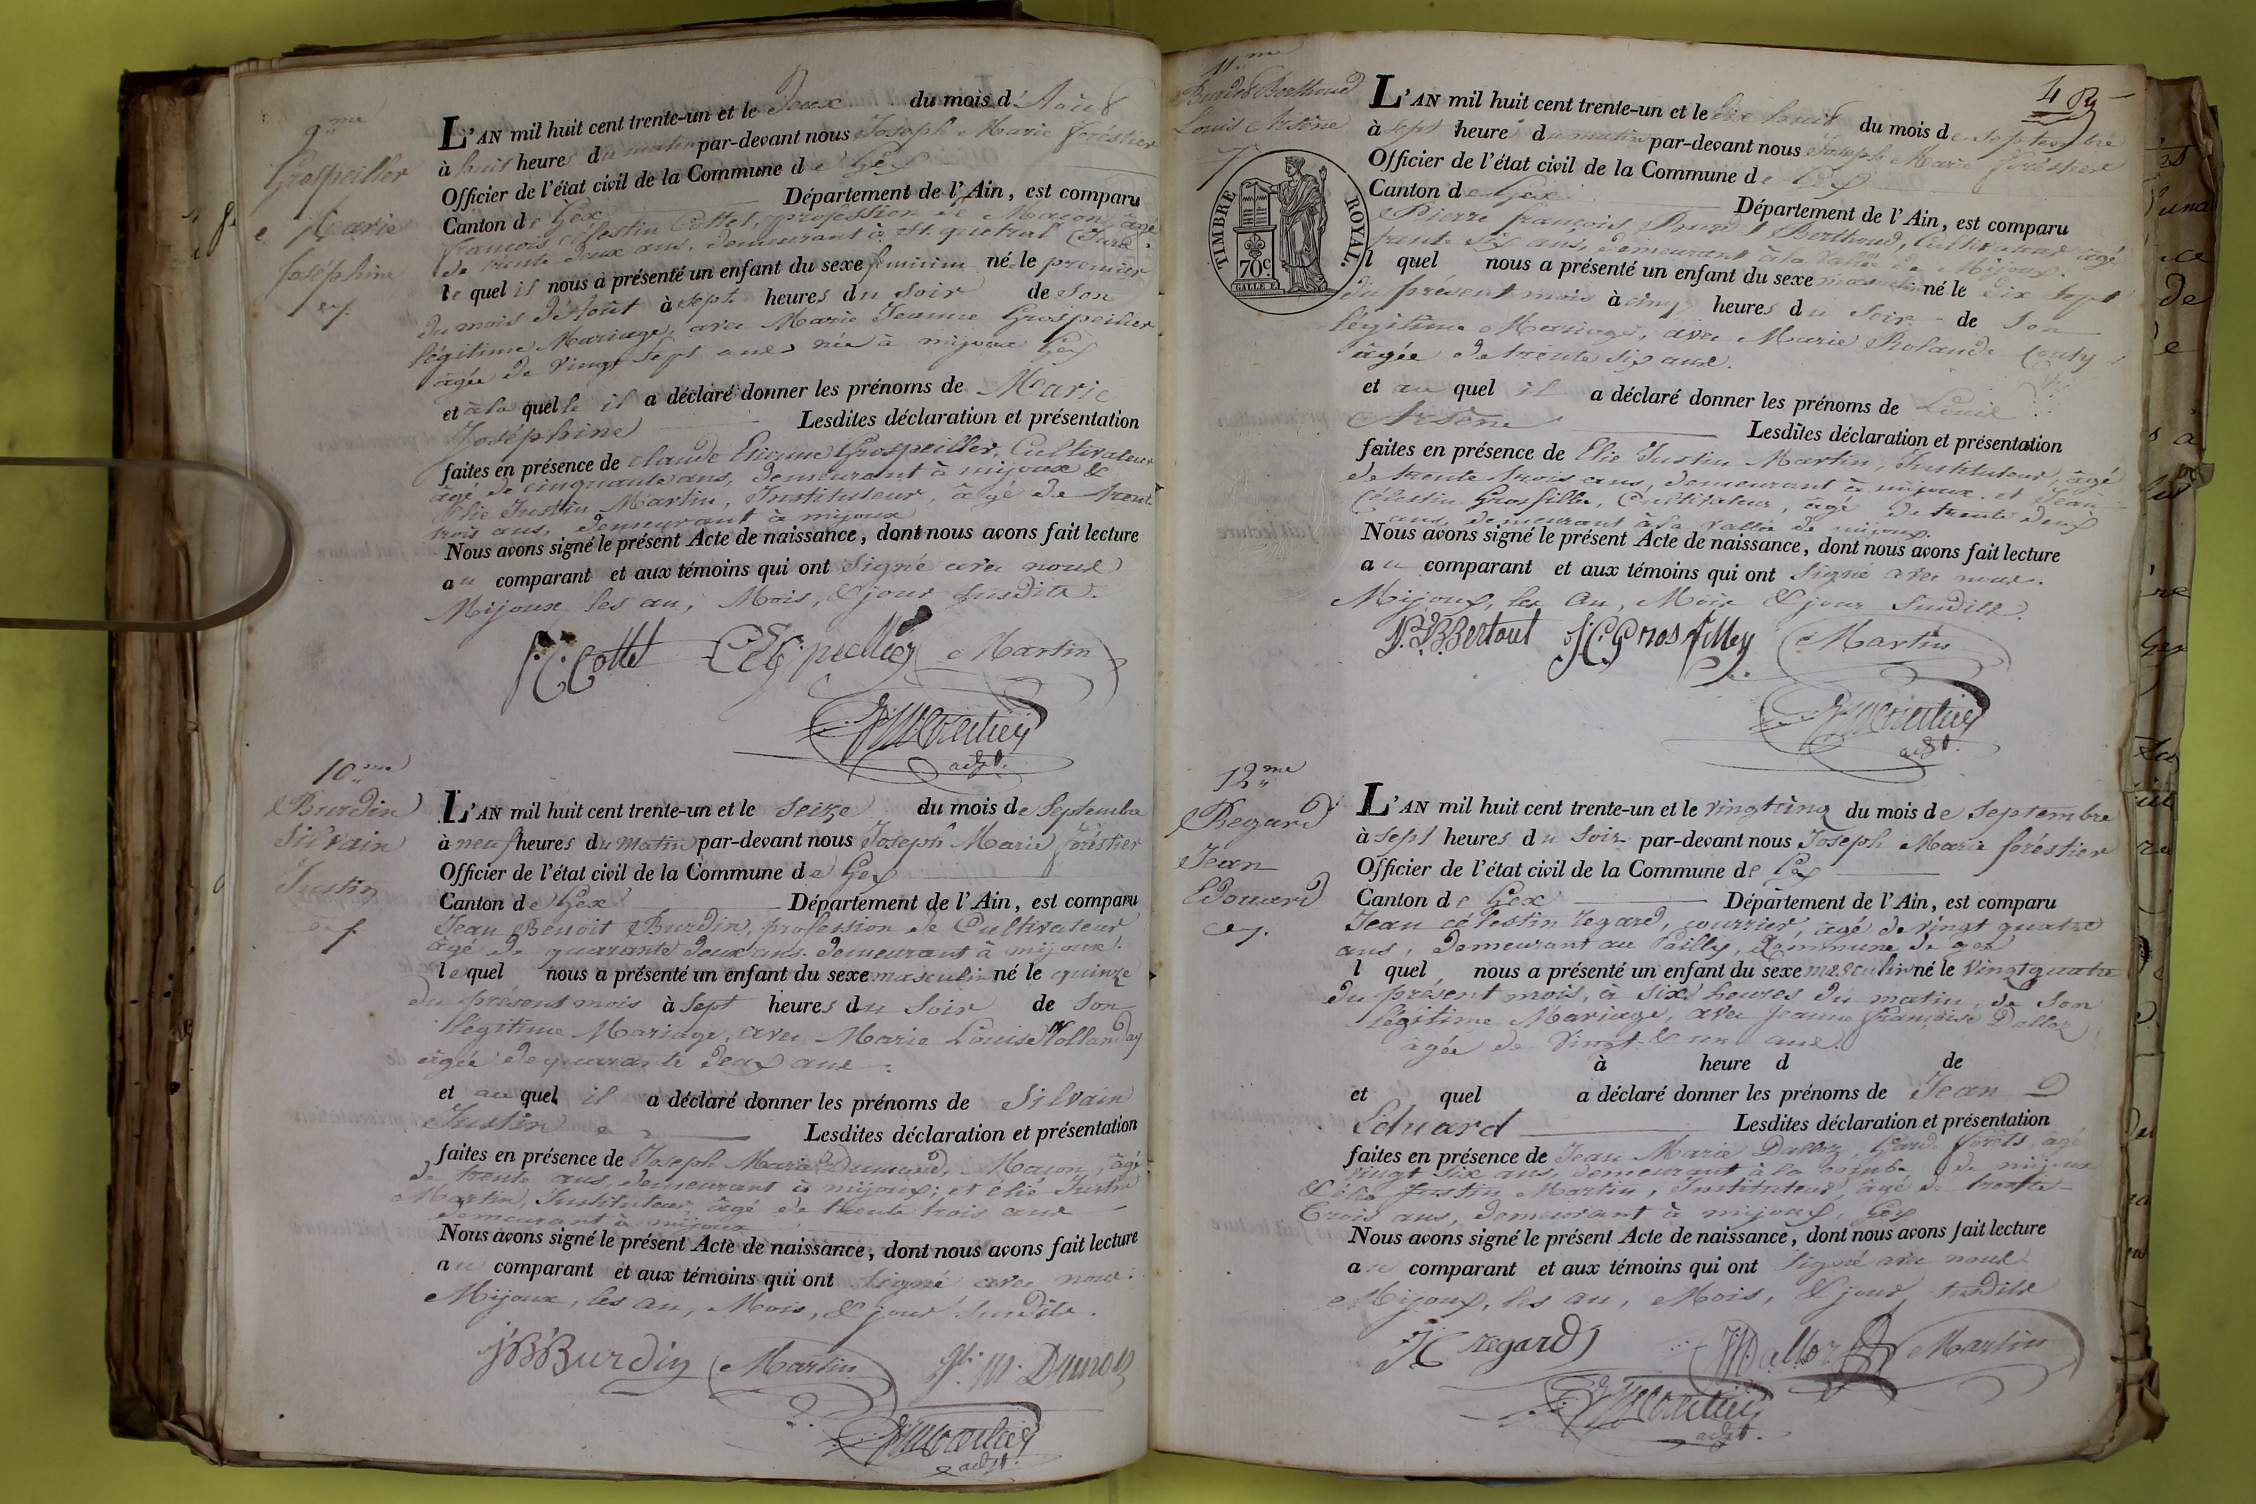 9me
Grospeiller
Marie
Joséphine
L'AN mil huit cent trente-un et le Deux du mois d'Août
à huit heures du matin par-devant nous Joseph Marie forèstier
Officier de l'état civil de la Commune de Gex
Canton de Gex Département de l'Ain, est comparu
françois Célestin Cottet, profession de Maçon, âgé
de trente deux ans, demeurant à St. (Jura)
le quel il nous a présenté un enfant du sexe féminin né le premier
du mois d'Août à sept heures du Soir de Son
légitime Mariage, avec Marie Jeanne Grospeiller
âgée de vingt sept ans née à mijoux Gex
et à la quelle il a déclaré donner les prénoms de Marie
Joséphine Lesdites déclaration et présentation
faites en présence de claude Etienne Grospeiller, Cultivateur
âgé de cinquante ans, demeurant à mijoux &
Elie Justin Martin, Instituteur, âgé de trente
trois ans, demeurant à mijoux
Nous avons signé le présent Acte de naissance, dont nous avons fait lecture
au comparant et aux témoins qui ont Signé avec nous
Mijoux les an, Mois, & jour Susdits.
f. C. Cottet Martin
adjt.
10me
Burdin
Silvain
Justin
L'AN mil huit cent trente-un et le Seize du mois de Septembre
à neuf heures du Matin par-devant nous Joseph Marie forèstier
Officier de l'état civil de la Commune de Gex
Canton de Gex Département de l'Ain, est comparu
Jean Benoit Burdin, profession de Cultivateur
âgé de quarante deux ans demeurant à mijoux.
le quel nous a présenté un enfant du sexe masculin né le quinze
du présent mois à Sept heures du Soir de Son
légitime Mariage, avec Marie Louise Vollanday
âgée de quarante deux ans
et au quel il a déclaré donner les prénoms de Silvain
Justin Lesdites déclaration et présentation
faites en présence de Joseph Marie Dumond, Maçon, âgé
de trente ans, demeurant à mijoux; et élie Justin
Martin, Instituteur âgé de trente trois ans
demeurant à mijoux
Nous avons signé le présent Acte de naissance, dont nous avons fait lecture
au comparant et aux témoins qui ont Signé avec nous.
Mijoux, les an, Mois, & jour Susdits.
JB Burdin Martin
adjt.
4
11me
Burdet Berthoud
Louis Arsène
TIMBRE ROYAL.
70c
L'AN mil huit cent trente-un et le dix huit du mois de Septembre
à sept heures du matin par-devant nous Joseph Marie forèstier
Officier de l'état civil de la Commune de Gex
Canton de Gex Département de l'Ain, est comparu
Pierre françois Burdet Berthoud, Cultivateur âgé
trente six ans, demeurant à la Vallée de Mijoux.
l quel nous a présenté un enfant du sexe masculin né le dix sept
du présent mois à cinq heures du Soir de Son
légitime Mariage, avec Marie Rolande
âgée de trente six ans.
et au quel il a déclaré donner les prénoms de Louis
Arsène Lesdites déclaration et présentation
faites en présence de Elie Justin Martin, Instituteur, âgé
de trente trois ans, demeurant à mijoux. et Jean
Célestin Grosfilley, Cultivateur, âgé de trente deux
ans, demeurant à la vallée de mijoux.
Nous avons signé le présent Acte de naissance, dont nous avons fait lecture
au comparant et aux témoins qui ont Signé avec nous.
Mijoux, les an, Mois & jour Susdits.
J C Grosfilley Martin
adjt.
12me
Regard
Jean
Edouard
L'AN mil huit cent trente-un et le vingt cinq du mois de Septembre
à Sept heures du Soir par-devant nous Joseph Marie forèstier
Officier de l'état civil de la Commune de Gex
Canton de Gex Département de l'Ain, est comparu
Jean célestin regard, âgé de vingt quatre
ans, demeurant au Pailly, Commune de gex
l quel nous a présenté un enfant du sexe masculin né le Vingt quatre
du présent mois, à six heures du matin, de Son
légitime Mariage, avec Jeanne françoise Dalloz
âgée de Vingt & un ans.
à heure d de
et quel a déclaré donner les prénoms de Jean
Eduard Lesdites déclaration et présentation
faites en présence de Jean Marie Dalloz, Garde forêts, âgé
vingt six ans, demeurant à la combe de mijoux
& élie Justin Martin, Instituteur âgé de trente
trois ans, demeurant à mijoux, Gex
Nous avons signé le présent Acte de naissance, dont nous avons fait lecture
au comparant et aux témoins qui ont Signé avec nous
Mijoux, les an, Mois, & jour, susdits
JC regard Dalloz Martin
adjt.